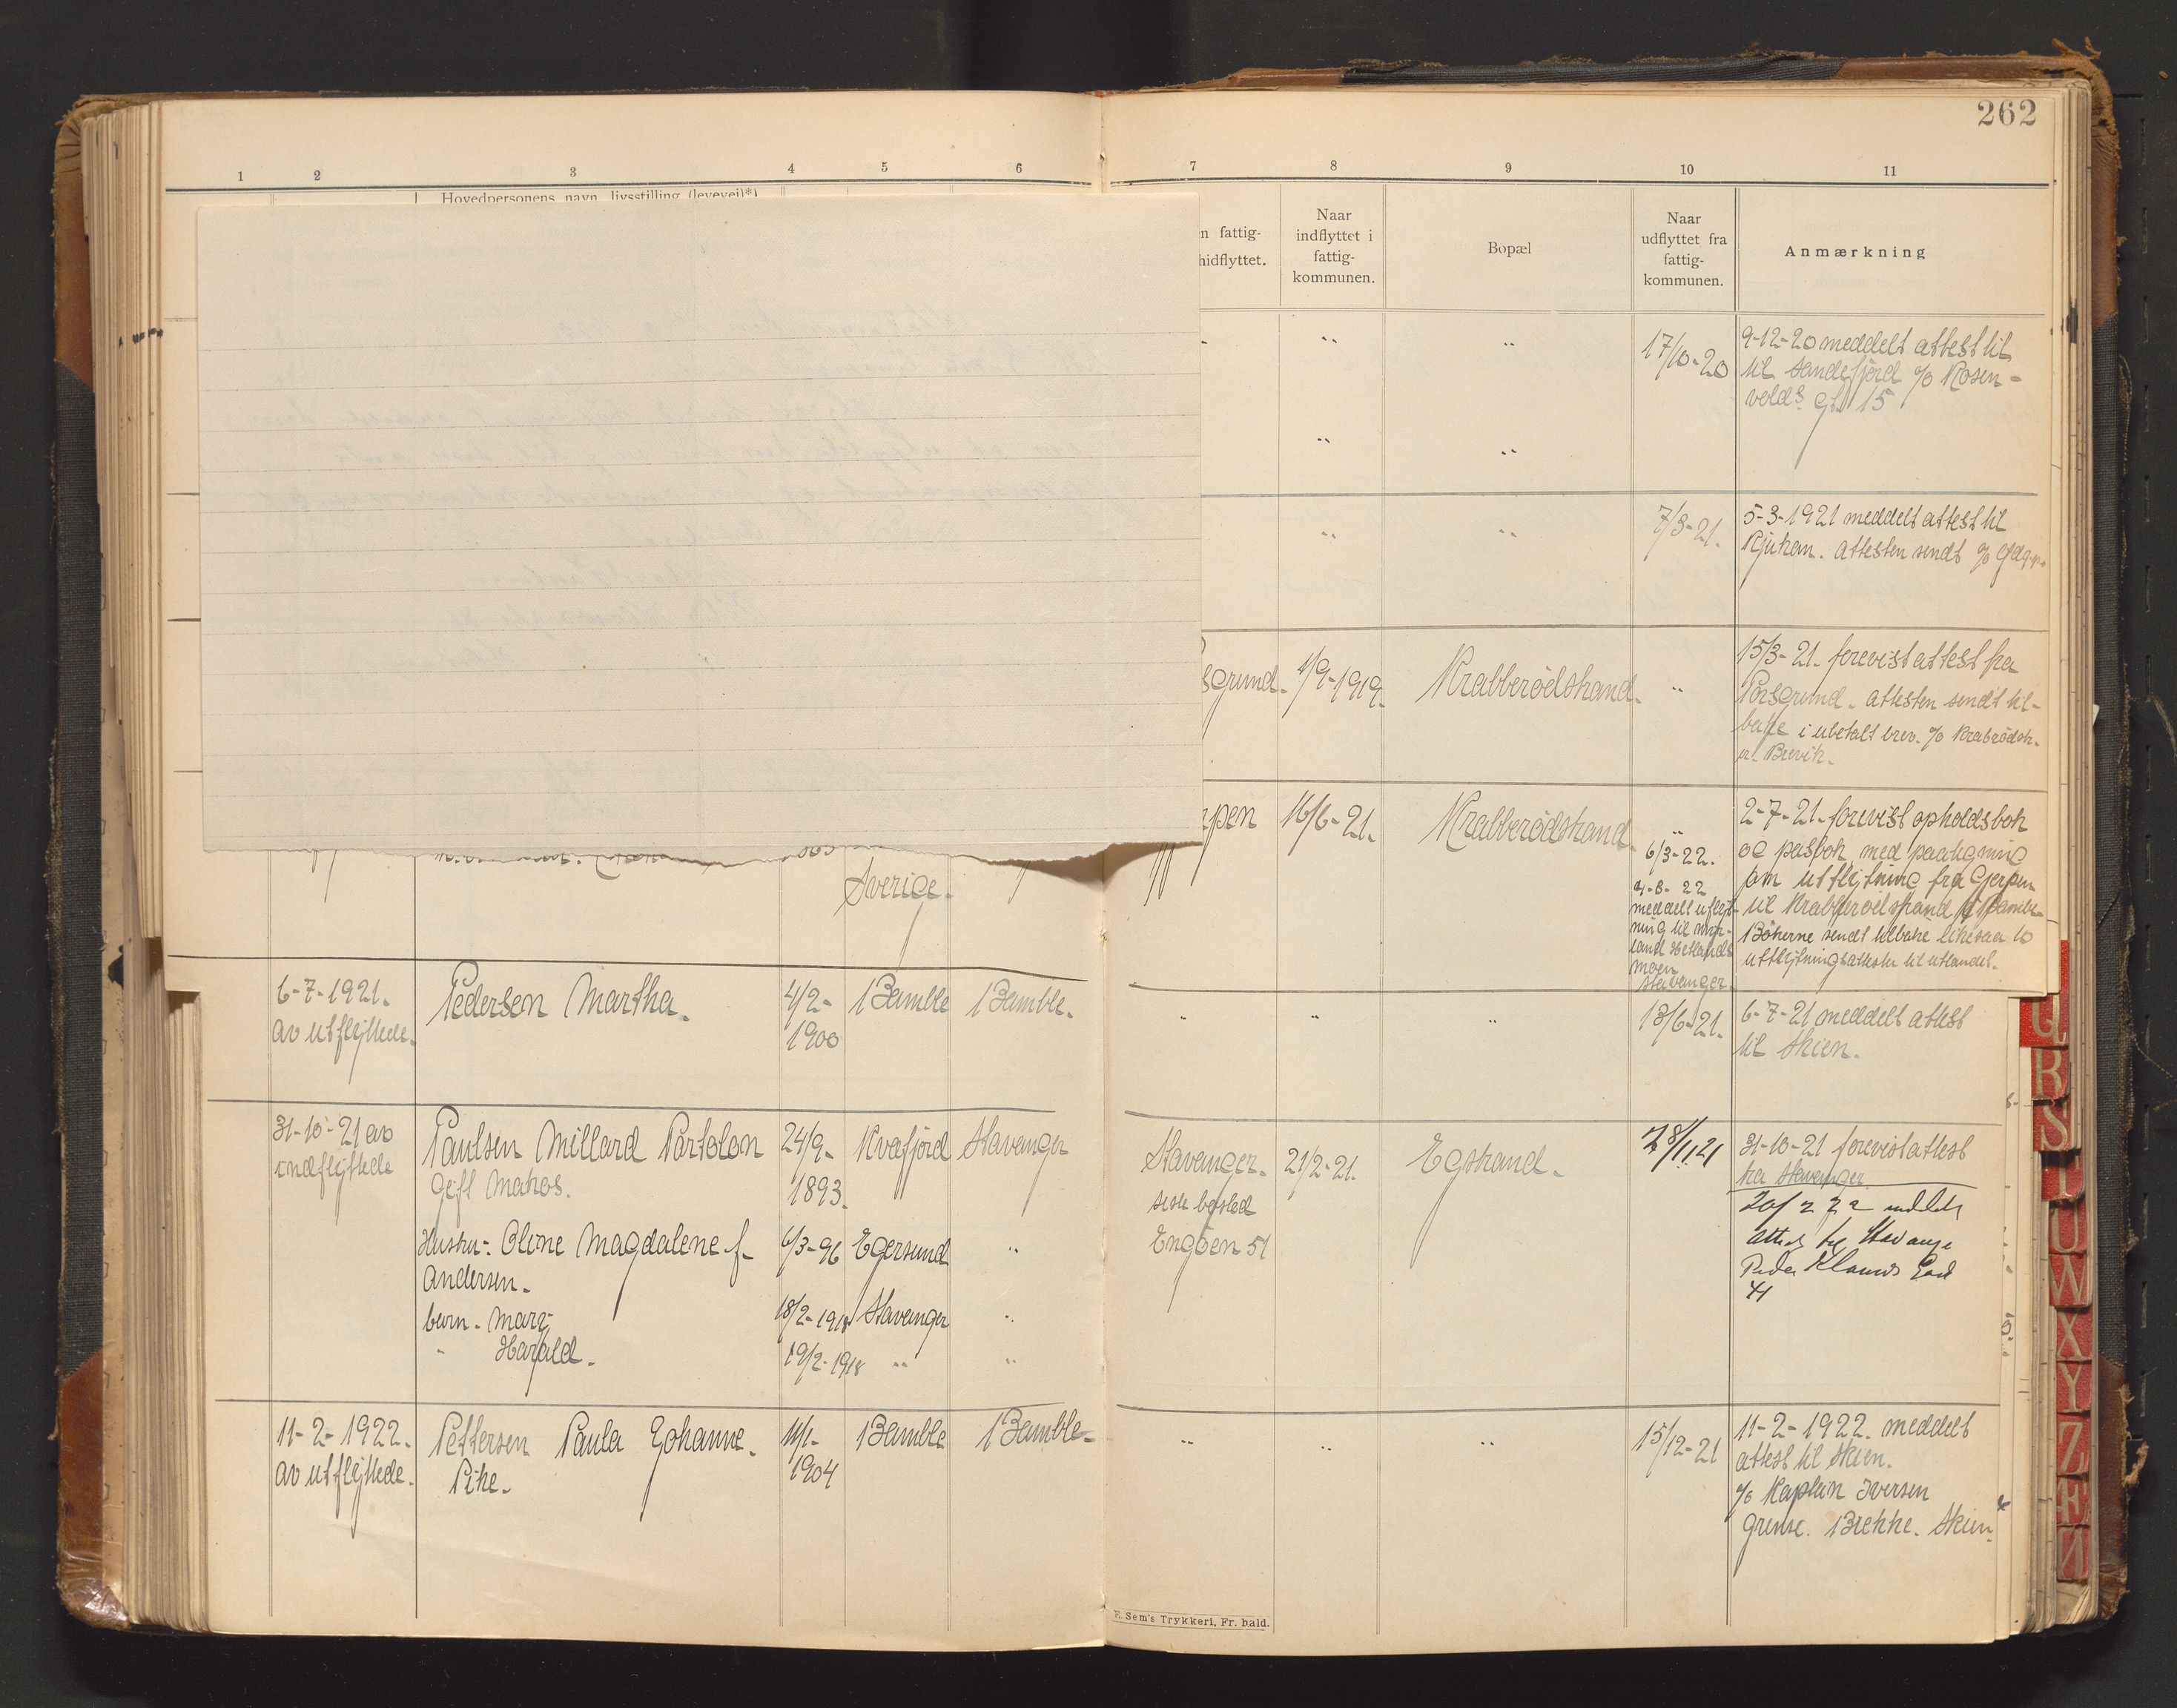 262
1 2 3 4 5 6 7 8 9 10 11
Hovedpersonens navn, livsstilling (levevei)*)
n fattig-
hidflyttet.
Naar
indflyttet i
fattig-
kommunen.
Bopæl
Naar
udflyttet fra
fattig-
kommunen.
Anmærkning
" " 17/10-20
9-12-20 meddelt attest til
til Sandefjord c/o Rosen-
volds gt. 15
" "
" " 7/3-21.
5-3-1921 meddelt attest til
Rjukan. attesten sendt c/o
sgrund. 1/9-1919. Krabberödstrand. "
15/3-21. forevist attest fra
Porsgrund. attesten sendt til-
bake i ubetalt brev. c/o Krabrödstr.
pr. Brevik.
rpen 16/6-21. Krabberödstrand. "
6/3-22.
4-8-22
meddelt utflyt-
ning til
Stavanger.
2-7-21. forevist opholdsbok
og pasbok med paategning
om utflytning fra Gjerpen
til Krabberödstrand i Bamble
Bökerne sendt tilbake likesaa to
utflytningsattester til utlandet.
Sverige.
6-7-1921.
av utflyttede.
Pedersen Martha.
4/2-
1900
Bamble Bamble.
" " " 13/6-21.
6-7-21 meddelt attest
til Skien.
31-10-21 av
indflyttede
Paulsen Millard Partolon
Gift Matros.
24/9-
1893.
Kvæfjord Stavanger
Hustru: Oline Magdalene f.
Andersen.
6/3-96 Egersund "
barn. Mary 18/2-1918 Stavanger "
" Harald. 19/2-1918 " "
Stavanger.
siste bosted
Engöen 51
21/2-21. Egstrand. 28/11 21
31-10-21 forevist attest
fra Stavanger.
20/2 22 meddelt
attest til Stavanger
Peder Klows Gade
41
11-2-1922.
av utflyttede.
Pettersen Paula Johanne.
Pike.
11/1-
1904
Bamble Bamble-
" " " 15/12-21
11-2-1922. meddelt
attest til Skien.
c/o Kaptein Iversen
Grense. Brekke. Skien.
E. Sem's Trykkeri, Fr. hald.
Q
R
S
T
U
W
X
Y
Z
Æ